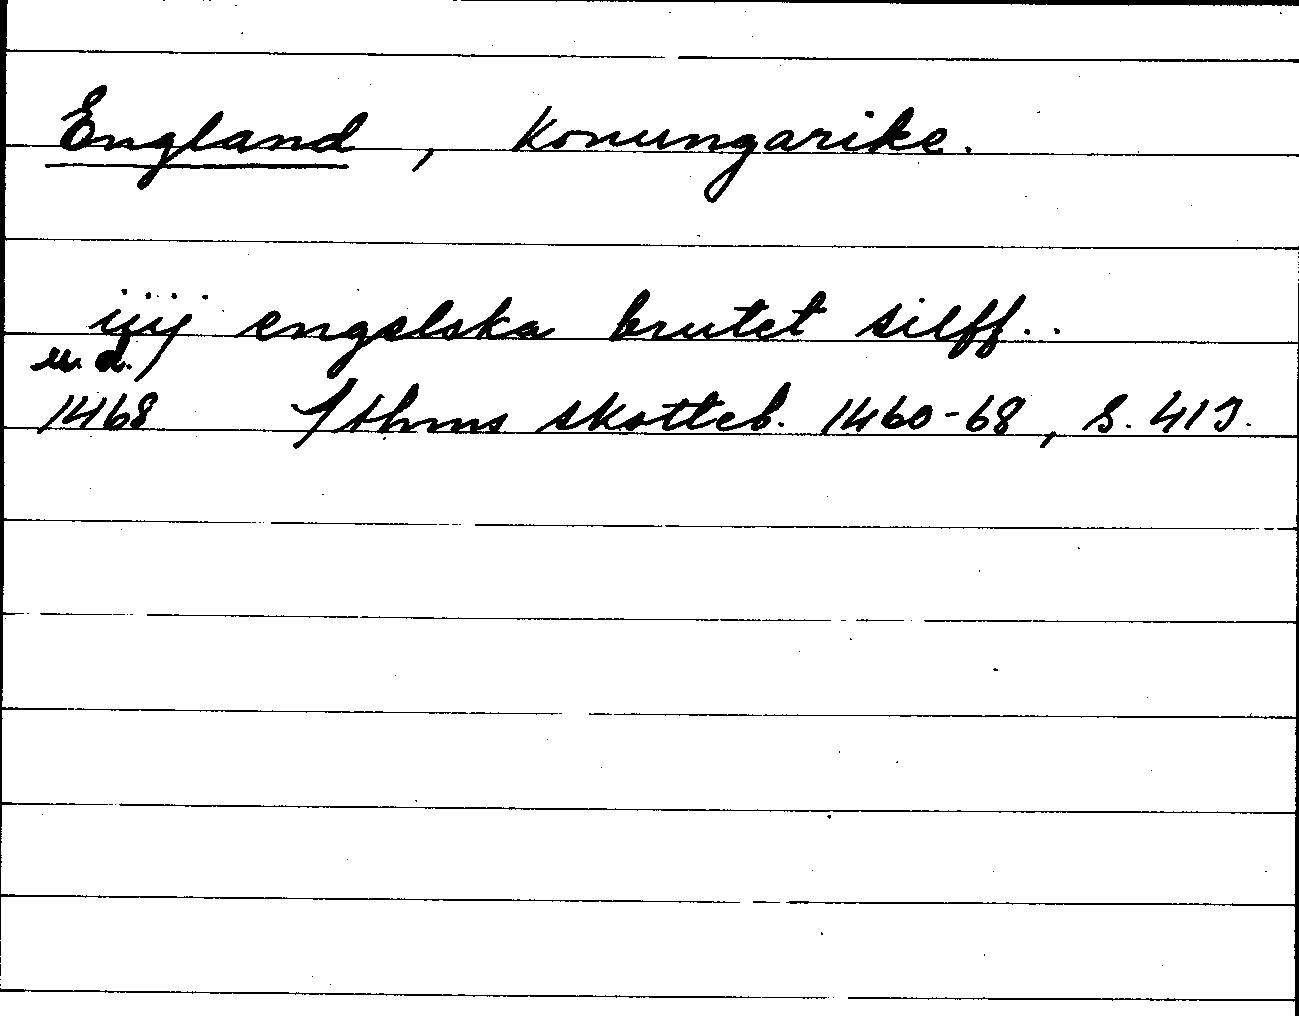 England, konungarike.
iiij engelska brutet silff..
u. d.
1468 Sthms skotteb. 1460-68, S. 413.